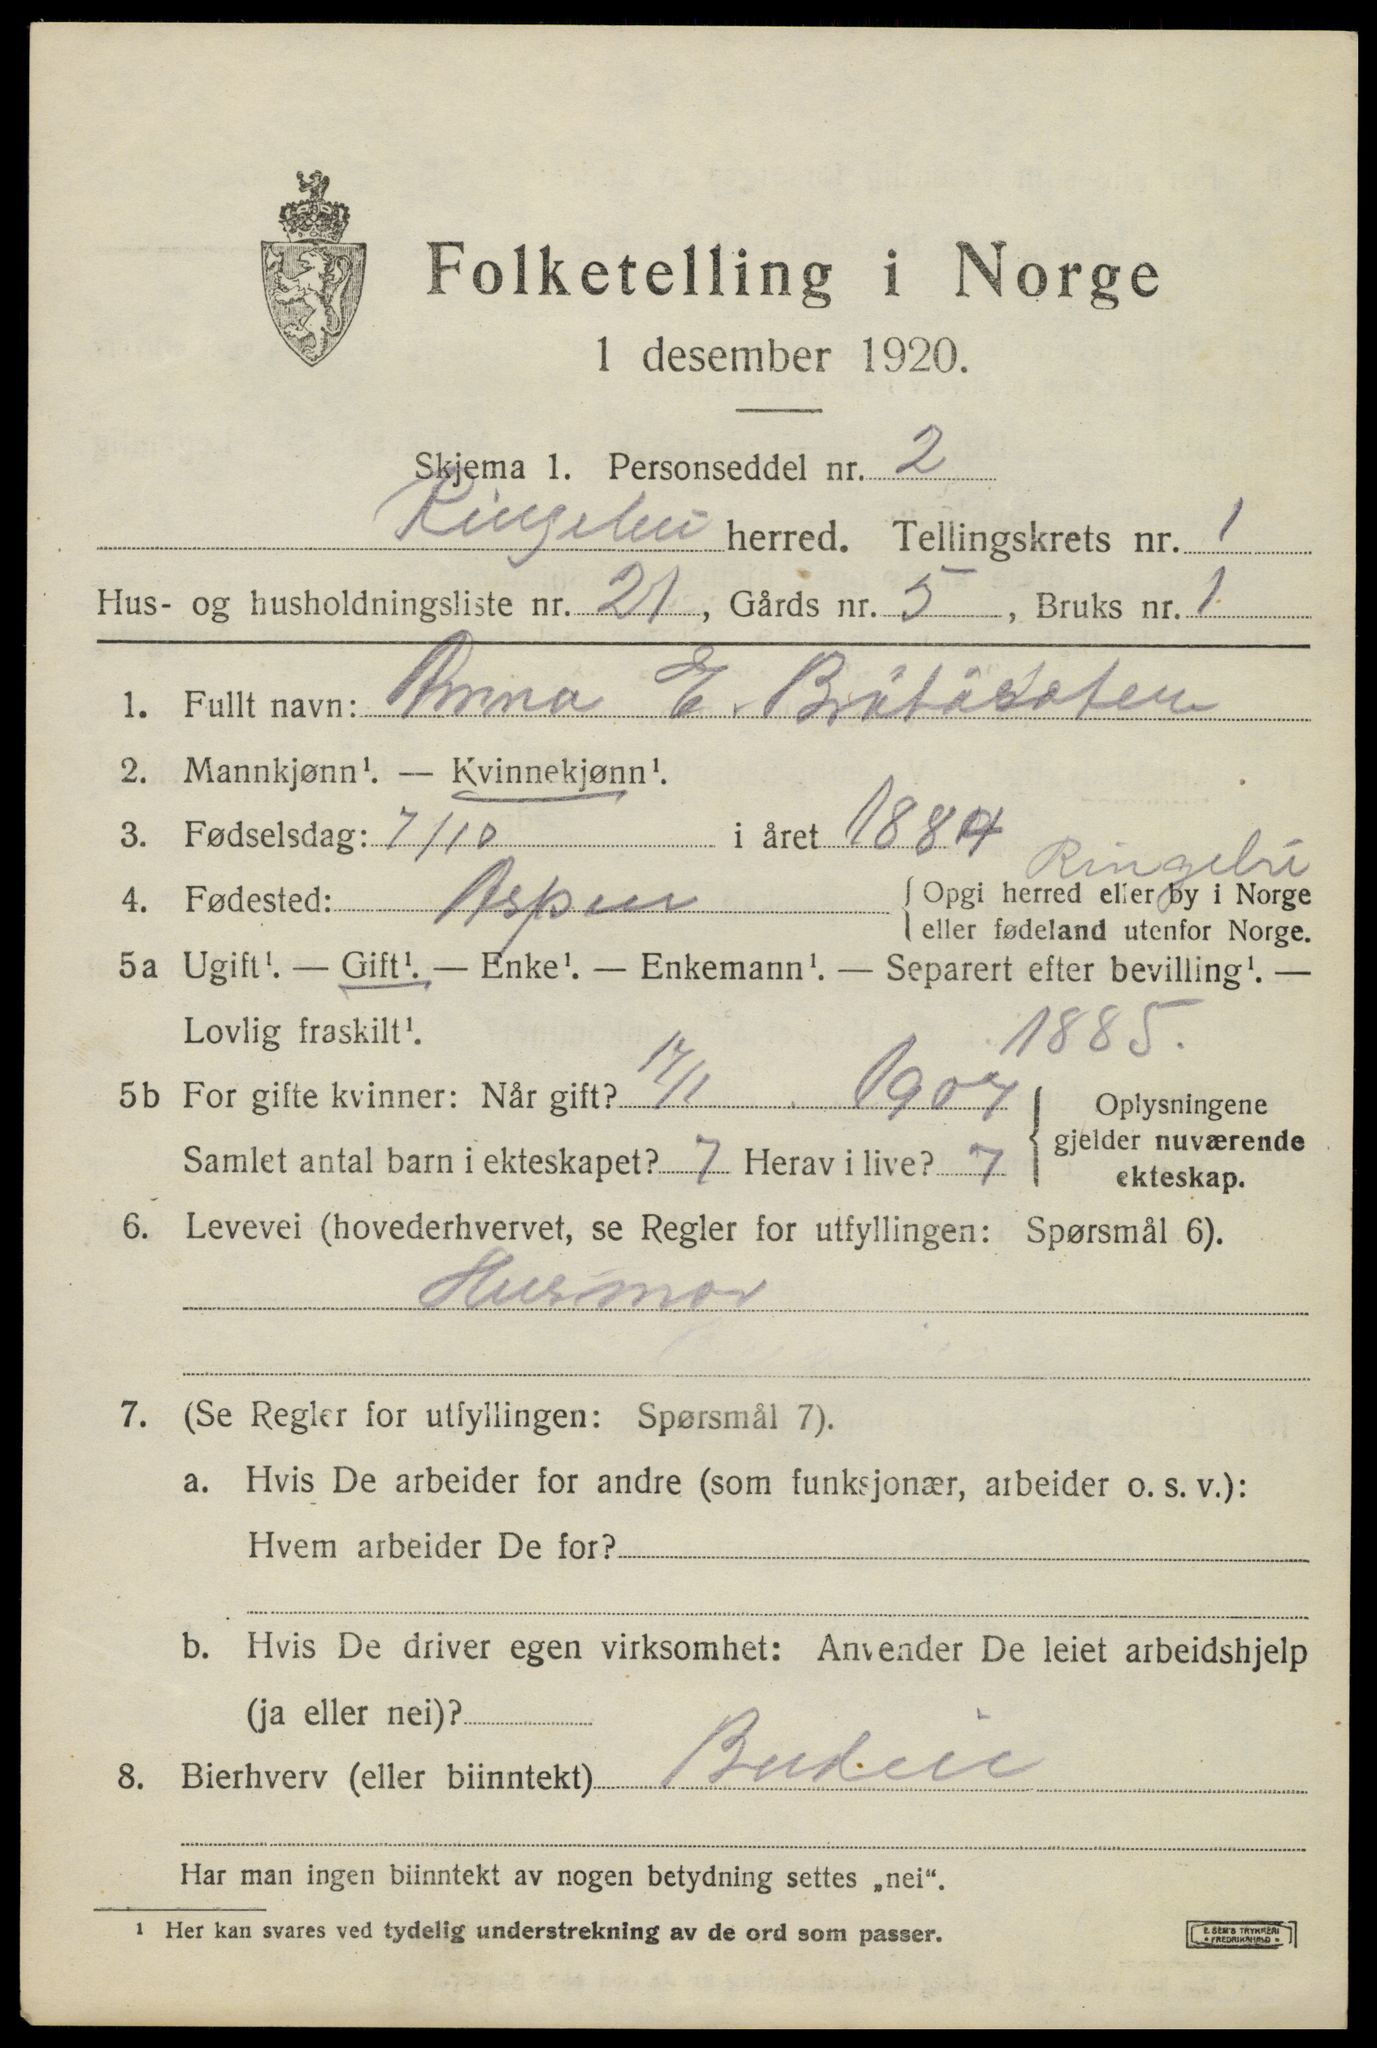 Folketelling i Norge
1 desember 1920.
Skjema 1. Personseddel nr. 2
Ringebu herred. Tellingskrets nr. 1
Hus- og husholdningsliste nr. 21, Gårds nr. 5, Bruks nr. 1
1. Fullt navn: Anna E. Bråtåsaten
2. Mannkjønn¹. — Kvinnekjønn¹.
3. Fødselsdag: 7/10 i året 1884
Ringebu
4. Fødested: Aspen { Opgi herred eller by i Norge
eller fødeland utenfor Norge.
5a Ugift¹. — Gift¹. — Enke¹. — Enkemann¹. — Separert efter bevilling¹. —
Lovlig fraskilt¹. 1885.
5b For gifte kvinner: Når gift? 17/1 1907
Samlet antal barn i ekteskapet? 7 Herav i live? 7
{ Oplysningene
gjelder nuværende
ekteskap.
6. Levevei (hovederhvervet, se Regler for utfyllingen: Spørsmål 6).
Husmor
7. (Se Regler for utfyllingen: Spørsmål 7).
a. Hvis De arbeider for andre (som funksjonær, arbeider o. s. v.):
Hvem arbeider De for?
b. Hvis De driver egen virksomhet: Anvender De leiet arbeidshjelp
(ja eller nei)?
8. Bierhverv (eller biinntekt) Budeie
Har man ingen biinntekt av nogen betydning settes „nei".
¹ Her kan svares ved tydelig understrekning av de ord som passer.
E. SEM'S TRYKKERI
• FREDRIKSHALD •